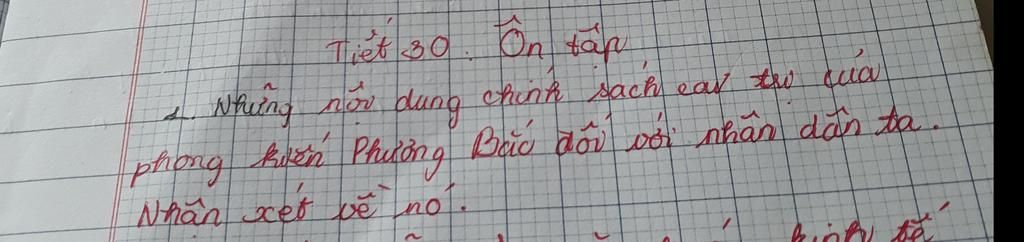 Tiết 30. Ôn tập
1. Những nội dung chính sách cai trị của
phong kiến Phương Bắc đối với nhân dân ta.
Nhận xét về nó.
kinh tế